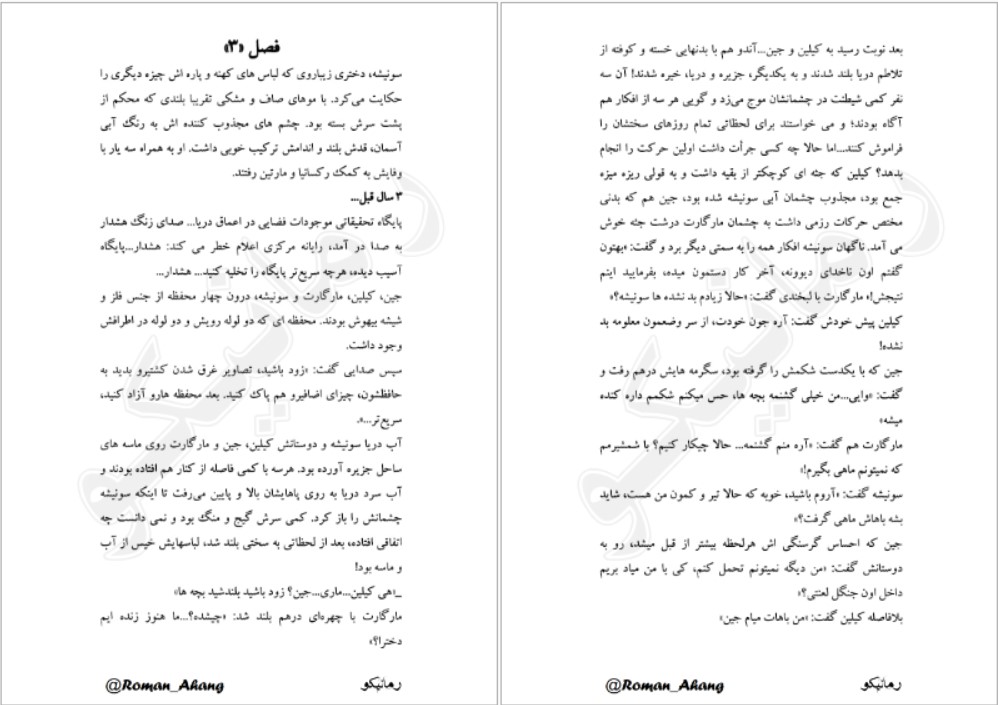 فصل «۳»
سونیشه، دختری زیباروی که لباس های کهنه و پاره اش چیزه دیگری را
حکایت می‌کرد. با موهای صاف و مشکی تقریبا بلندی که محکم از
پشت سرش بسته بود. چشم های مجذوب کننده اش به رنگ آبی
آسمان، قدش بلند و اندامش ترکیب خوبی داشت. او به همراه سه یار با
وفایش به کمک رکسانیا و مارتین رفتند.
۳ سال قبل...
پایگاه تحقیقاتی موجودات فضایی در اعماق دریا... صدای زنگ هشدار
به صدا در آمد، رایانه مرکزی اعلام خطر می کند: هشدار...پایگاه
آسیب دیده، هرچه سریع‌تر پایگاه را تخلیه کنید... هشدار...
جین، کیلین، مارگارت و سونیشه، درون چهار محفظه از جنس فلز و
شیشه بیهوش بودند. محفظه ای که دو لوله رویش و دو لوله در اطرافش
وجود داشت.
سپس صدایی گفت: «زود باشید، تصاویر غرق شدن کشتیرو بدید به
حافظشون، چیزای اضافیرو هم پاک کنید. بعد محفظه هارو آزاد کنید،
سریع‌تر...».
آب دریا سونیشه و دوستانش کیلین، جین و مارگارت روی ماسه های
ساحل جزیره آورده بود. هرسه با کمی فاصله از کنار هم افتاده بودند و
آب سرد دریا به روی پاهایشان بالا و پایین می‌رفت تا اینکه سونیشه
چشمانش را باز کرد. کمی سرش گیج و منگ بود و نمی دانست چه
اتفاقی افتاده، بعد از لحظاتی به سختی بلند شد، لباسهایش خیس از آب
و ماسه بود!
_«هی کیلین...ماری...جین؟ زود باشید بلندشید بچه ها»
مارگارت با چهره‌ای درهم بلند شد: «چیشده؟...ما هنوز زنده ایم
دخترا؟»
رمانیکو
@Roman_Ahang
بعد نوبت رسید به کیلین و جین...آندو هم با بدنهایی خسته و کوفته از
تلاطم دریا بلند شدند و به یکدیگر، جزیره و دریا، خیره شدند! آن سه
نفر کمی شیطنت در چشمانشان موج می‌زد و گویی هر سه از افکار هم
آگاه بودند؛ و می خواستند برای لحظاتی تمام روزهای سختشان را
فراموش کنند...اما حالا چه کسی جرأت داشت اولین حرکت را انجام
بدهد؟ کیلین که جثه ای کوچکتر از بقیه داشت و به قولی ریزه میزه
جمع بود، مجذوب چشمان آبی سونیشه شده بود، جین هم که بدنی
مختص حرکات رزمی داشت به چشمان مارگارت درشت جثه خوش
می آمد. ناگهان سونیشه افکار همه را به سمتی دیگر برد و گفت: «بهتون
گفتم اون ناخدای دیوونه، آخر کار دستمون میده، بفرمایید اینم
نتیجش!» مارگارت با لبخندی گفت: «حالا زیادم بد نشده ها سونیشه؟»
کیلین پیش خودش گفت: آره جون خودت، از سر وضعمون معلومه بد
نشده!
جین که با یکدست شکمش را گرفته بود، سگرمه هایش درهم رفت و
گفت: «وایی...من خیلی گشنمه بچه ها، حس میکنم شکمم داره کنده
میشه»
مارگارت هم گفت: «آره منم گشنمه... حالا چیکار کنیم؟ با شمشیرم
که نمیتونم ماهی بگیرم!»
سونیشه گفت: «آروم باشید، خوبه که حالا تیر و کمون من هست، شاید
بشه باهاش ماهی گرفت؟»
جین که احساس گرسنگی اش هرلحظه بیشتر از قبل میشد، رو به
دوستانش گفت: «من دیگه نمیتونم تحمل کنم، کی با من میاد بریم
داخل اون جنگل لعنتی؟»
بلافاصله کیلین گفت: «من باهات میام جین»
رمانیکو
@Roman_Ahang